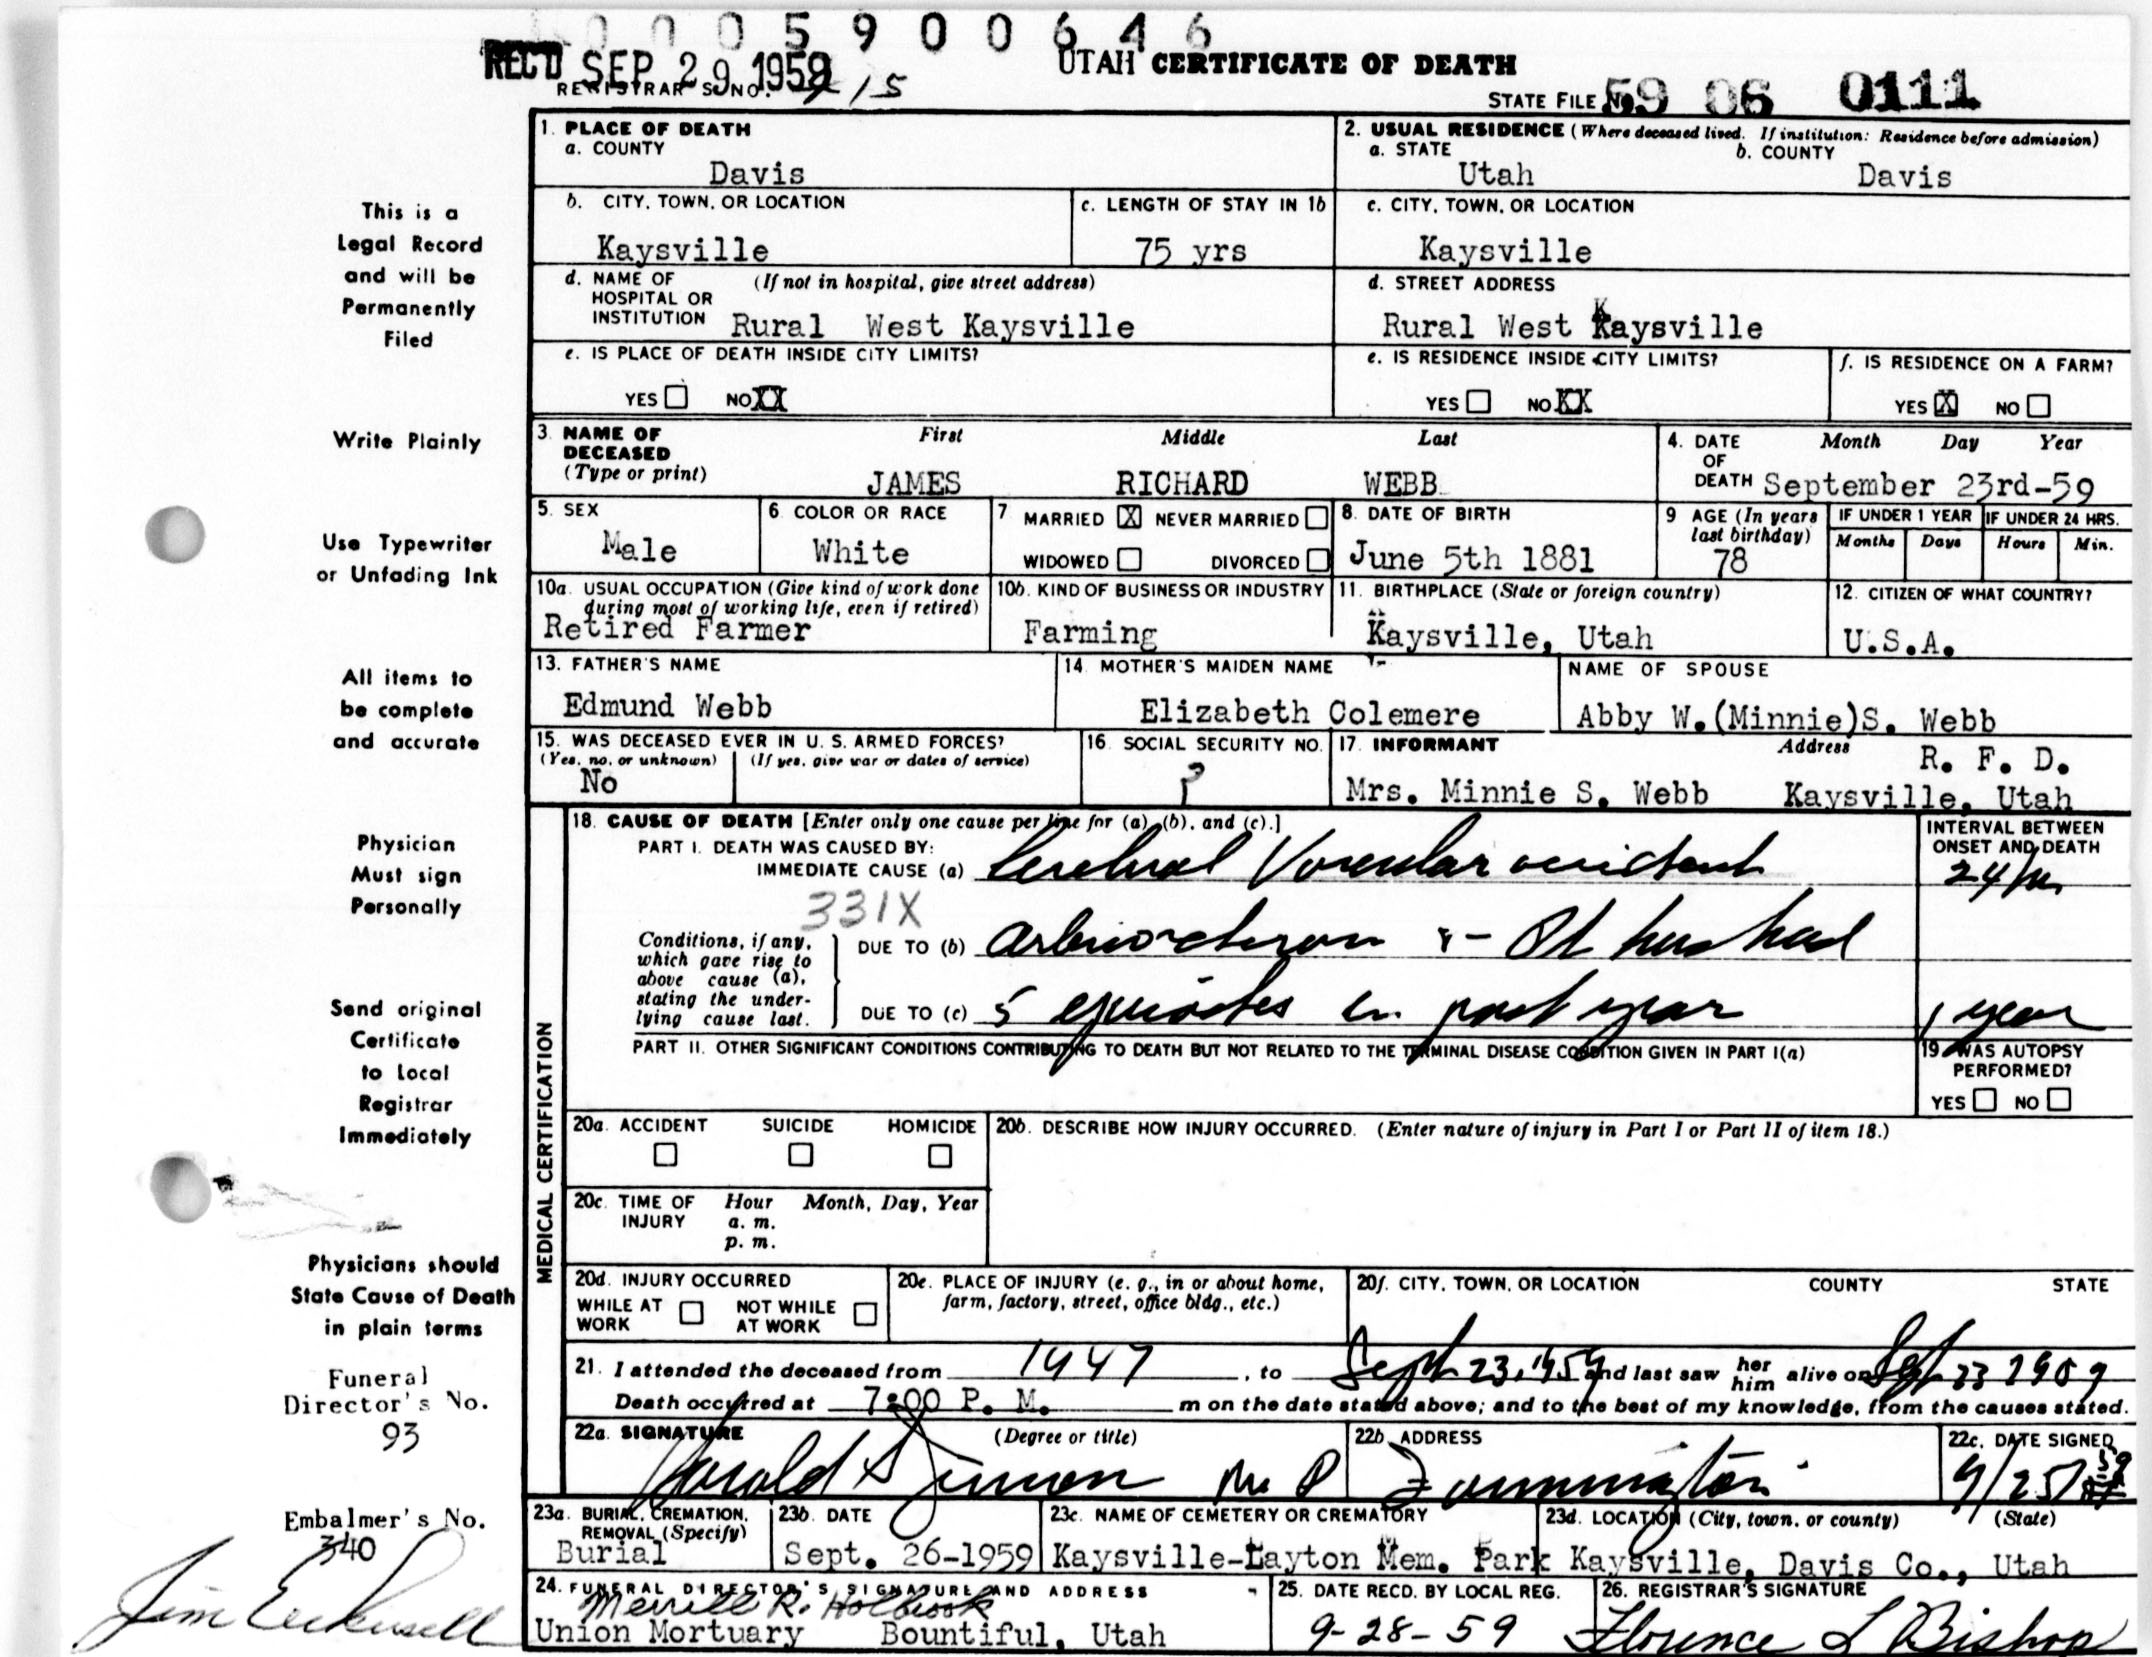 0005900646
REC'D SEP 29 1959
UTAH CERTIFICATE OF DEATH
REGISTRAR'S NO. 215
STATE FILE NO. 59 06 0111
This is a
Legal Record
and will be
Permanently
Filed
Write Plainly
Use Typewriter
or Unfading Ink
All items to
be complete
and accurate
Physician
Must sign
Personally
Send original
Certificate
to Local
Registrar
Immediately
Physicians should
State Cause of Death
in plain terms
Funeral
Director's No.
93
Embalmer's No.
340
Jim
1. PLACE OF DEATH
a. COUNTY
Davis
2. USUAL RESIDENCE (Where deceased lived. If institution: Residence before admission)
a. STATE b. COUNTY
Utah Davis
b. CITY, TOWN, OR LOCATION
Kaysville
c. LENGTH OF STAY IN 1b
75 yrs
c. CITY, TOWN, OR LOCATION
Kaysville
d. NAME OF (If not in hospital, give street address)
HOSPITAL OR
INSTITUTION Rural West Kaysville
d. STREET ADDRESS
Rural West Kaysville
e. IS PLACE OF DEATH INSIDE CITY LIMITS?
YES NO XX
e. IS RESIDENCE INSIDE CITY LIMITS?
YES NO XX
f. IS RESIDENCE ON A FARM?
YES X NO
3. NAME OF First Middle Last
DECEASED
(Type or print) JAMES RICHARD WEBB
4. DATE Month Day Year
OF
DEATH September 23rd-59
5. SEX
Male
6. COLOR OR RACE
White
7 MARRIED X NEVER MARRIED
WIDOWED DIVORCED
8. DATE OF BIRTH
June 5th 1881
9 AGE (In years
last birthday)
78
IF UNDER 1 YEAR IF UNDER 24 HRS.
Months Days Hours Min.
10a. USUAL OCCUPATION (Give kind of work done
during most of working life, even if retired)
Retired Farmer
10b. KIND OF BUSINESS OR INDUSTRY
Farming
11. BIRTHPLACE (State or foreign country)
Kaysville, Utah
12. CITIZEN OF WHAT COUNTRY?
U.S.A.
13. FATHER'S NAME
Edmund Webb
14. MOTHER'S MAIDEN NAME
Elizabeth Colemere
NAME OF SPOUSE
Abby W.(Minnie)S. Webb
15. WAS DECEASED EVER IN U. S. ARMED FORCES?
(Yes, no, or unknown) (If yes, give war or dates of service)
No
16. SOCIAL SECURITY NO.
?
17. INFORMANT Address R. F. D.
Mrs. Minnie S. Webb Kaysville, Utah
MEDICAL CERTIFICATION
18. CAUSE OF DEATH [Enter only one cause per line for (a), (b), and (c).]
PART I. DEATH WAS CAUSED BY:
IMMEDIATE CAUSE (a) Cerebral Vascular accident
INTERVAL BETWEEN
ONSET AND DEATH
24 hr
331X
Conditions, if any,
which gave rise to
above cause (a),
stating the under-
lying cause last.
DUE TO (b) Pt has had
DUE TO (c) 5 episodes in past year
1 year
PART II. OTHER SIGNIFICANT CONDITIONS CONTRIBUTING TO DEATH BUT NOT RELATED TO THE TERMINAL DISEASE CONDITION GIVEN IN PART I(a)
19. WAS AUTOPSY
PERFORMED?
YES NO
20a. ACCIDENT SUICIDE HOMICIDE
20b. DESCRIBE HOW INJURY OCCURRED. (Enter nature of injury in Part I or Part II of item 18.)
20c. TIME OF Hour Month, Day, Year
INJURY a. m.
p. m.
20d. INJURY OCCURRED
WHILE AT NOT WHILE
WORK AT WORK
20e. PLACE OF INJURY (e. g., in or about home,
farm, factory, street, office bldg., etc.)
20f. CITY, TOWN, OR LOCATION COUNTY STATE
21. I attended the deceased from 1947, to Sept 23, 1959 and last saw her him alive on Sept 23 1959
Death occurred at 7:00 P. M. m on the date stated above; and to the best of my knowledge, from the causes stated.
22a. SIGNATURE (Degree or title)
Harold M D
22b. ADDRESS
Farmington
22c. DATE SIGNED
9/25/59
23a. BURIAL, CREMATION,
REMOVAL (Specify)
Burial
23b. DATE
Sept. 26-1959
23c. NAME OF CEMETERY OR CREMATORY
Kaysville-Layton Mem. Park
23d. LOCATION (City, town, or county) (State)
Kaysville, Davis Co., Utah
24. FUNERAL DIRECTOR'S SIGNATURE AND ADDRESS
Merrill R. Holbrook
Union Mortuary Bountiful, Utah
25. DATE RECD. BY LOCAL REG.
9-28-59
26. REGISTRAR'S SIGNATURE
Florence L Bishop